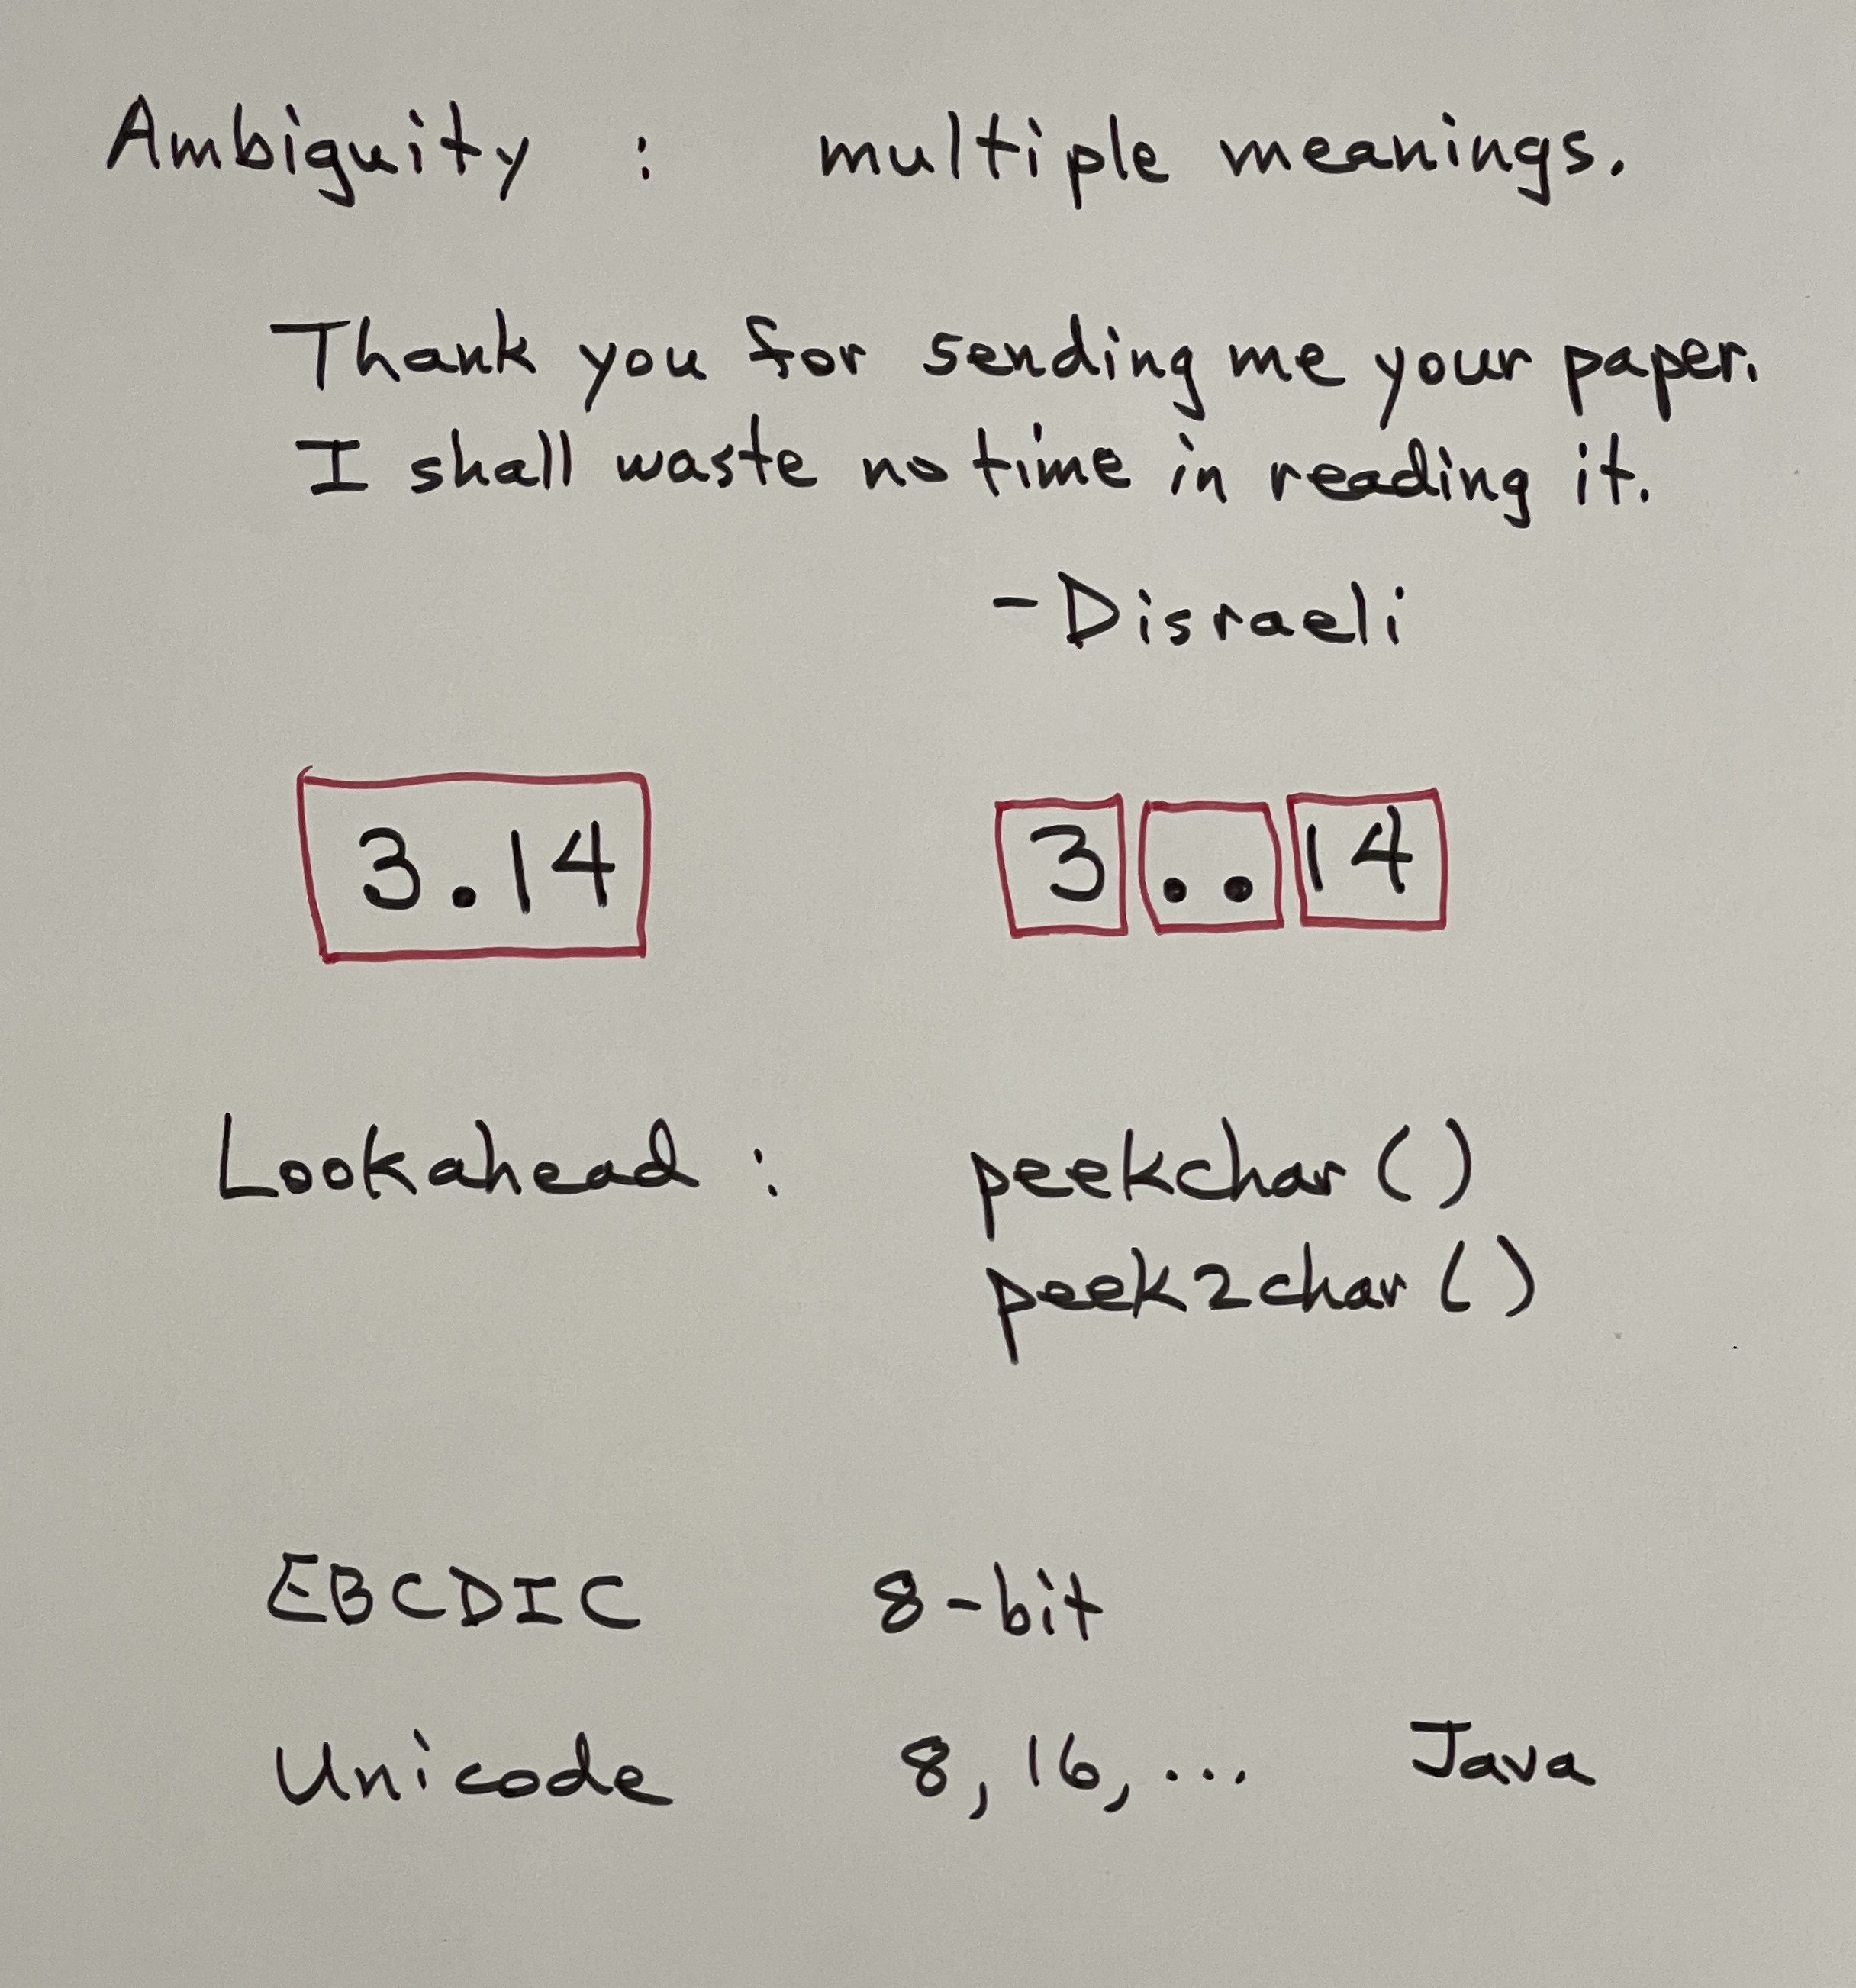 Ambiguity : multiple meanings.
Thank you for sending me your paper.
I shall waste no time in reading it.
-Disraeli
3.14 3 .. 14
Lookahead : peekchar ()
peek2char ()
EBCDIC 8-bit
Unicode 8, 16, ... Java